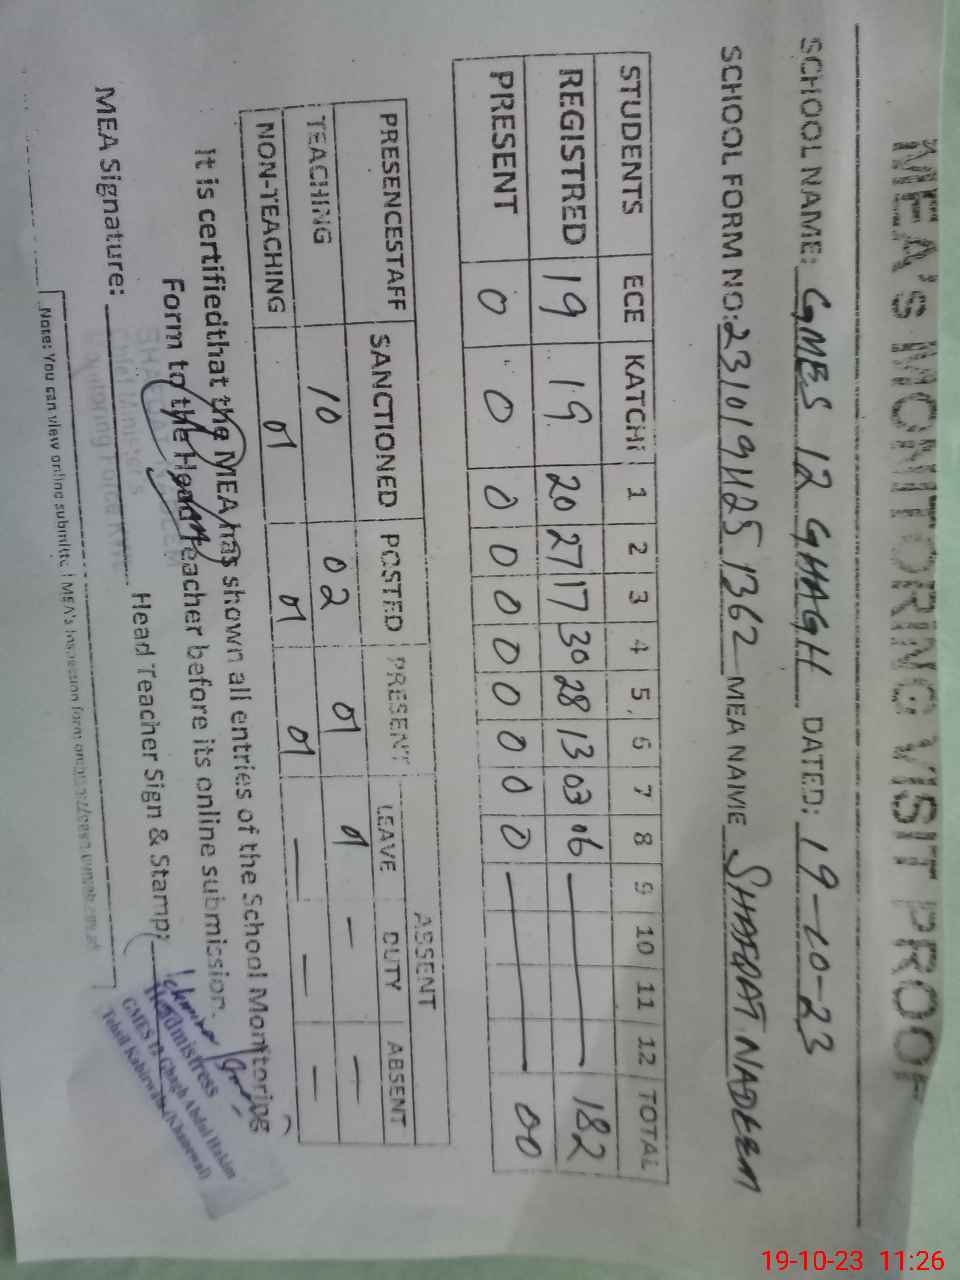 MEA'S MONITORING VISIT PROOF
SCHOOL NAME: GMES 12 GHAGH DATED: 19-10-23
SCHOOL FORM NO: 23101911251362 MEA NAME SHAFQAT NADEEM
STUDENTS ECE KATCHI 1 2 3 4 5 6 7 8 9 10 11 12 TOTAL
REGISTRED 19 19 20 27 17 30 28 13 03 06 — 182
PRESENT 0 0 0 0 0 0 0 0 0 0 — 00
ABSENT
PRESENCESTAFF SANCTIONED POSTED PRESENT LEAVE DUTY ABSENT
TEACHING 10 02 01 01 — —
NON-TEACHING 01 01 01 — — —
It is certifiedthat the MEA has shown all entries of the School Monitoring
Form to the Head Teacher before its online submission.
MEA Signature: Head Teacher Sign & Stamp:
SHAFQAT NADEEM
Chief Minister's
Monitoring Force
Headmistress
GMES 12 Ghagh Abdul Hakim
Tehsil Kabirwala (Khanewal)
Note: You can view online submitted MEA's Inspection form on
19-10-23 11:26